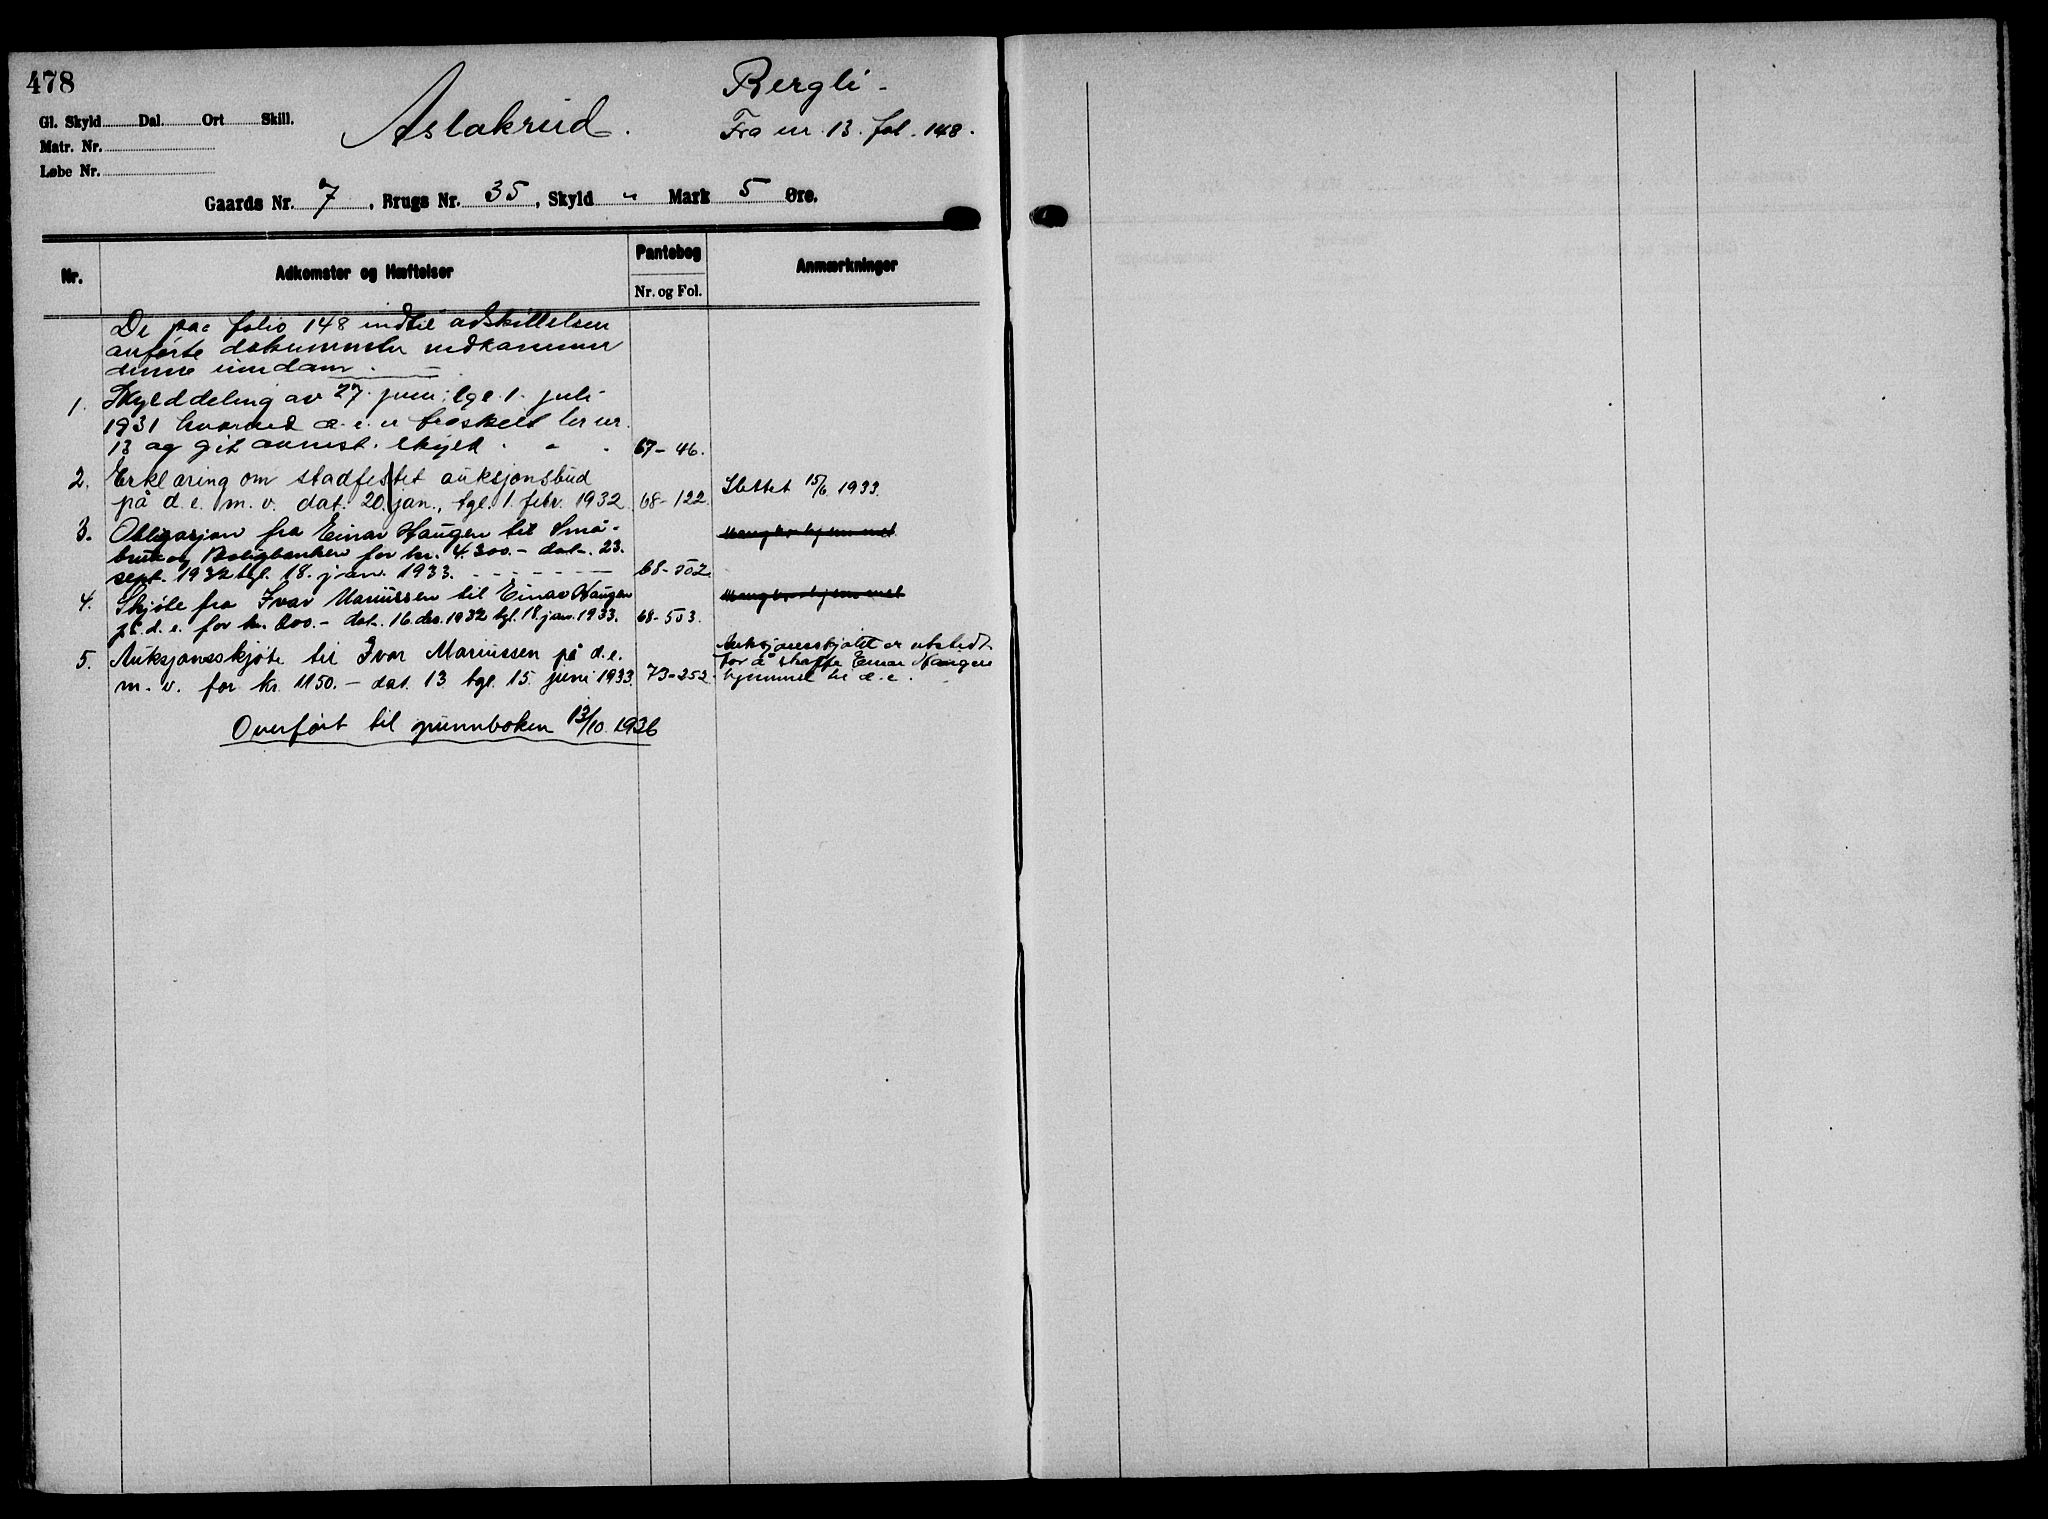 478
Gl. Skyld Dal. Ort Skill.
Matr. Nr.
Løbe Nr.
Aslakrud.
Bergli -
Fra nr. 13. fol. 148.
Gaards Nr. 7, Brugs Nr. 35, Skyld " Mark 5 Øre.
Nr.
Adkomster og Hæftelser
Pantebog
Nr. og Fol.
Anmærkninger
De paa folio 148 indtil adskillelsen
anførte dokumenter vedkommer
denne eiendom.
1. Skylddeling av 27. juni, tgl. 1. juli
1931 hvorved d. e. er fraskelt br nr.
13 og git anmst. skyld. 67-46.
2. Erklæring om stadfestet auksjonsbud
på d. e. m. v. dat. 20. jan., tgl. 1. febr. 1932 68-122. Slettet 15/6 1933.
3. Obligasjon fra Einar Haugen til Små-
bruk og Boligbanken for kr. 4.300.- dat. 23.
sept. 1932 tgl. 18. jan. 1933. 68-552. Mangler hjemmel
4. Skjøte fra Ivar Mariussen til Einar Haugen
på d. e. for kr. 800.- dat. 16. des. 1932 tgl. 18. jan. 1933. 68-553. Mangler hjemmel
5. Auksjonsskjøte til Ivar Mariussen på d. e.
m. v. for kr. 1150.- dat. 13. tgl. 15. juni 1933. 73-252.
Auksjonsskjøtet er utstedt
for å skaffe Einar Haugen
hjemmel til d. e.
Overført til grunnboken 13/10. 1936